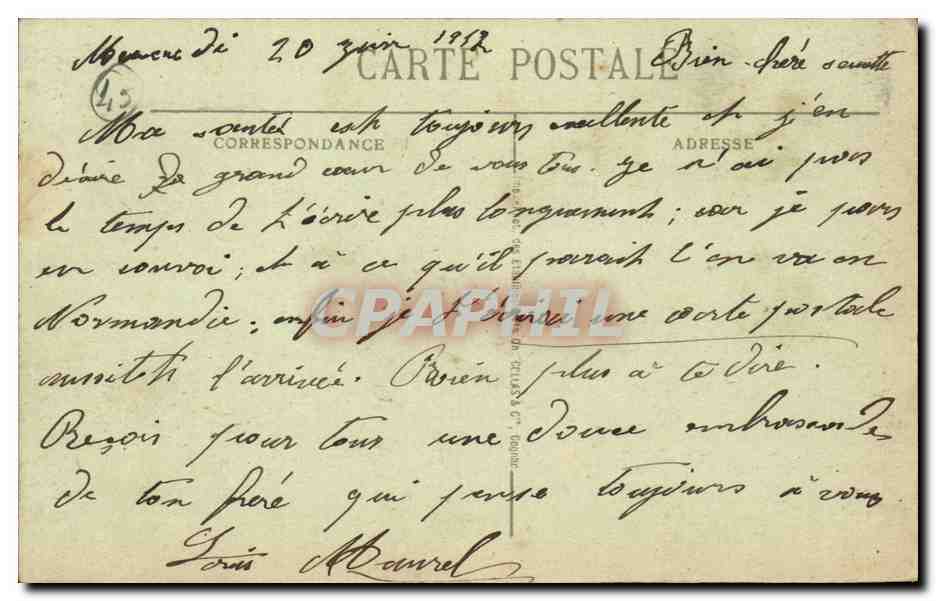 di 20 juin
CARTE POSTALE
Bien chéré
45
Ma santé est toujours exellente et j'en
CORRESPONDANCE
ADRESSE
déaire de grand cœur de vous tous. Je n'ai pas
le temps de t'écrire plus longuement; car je pars
en convoi; et à ce qu'il parait l'on va en
Normandie; enfin je t'écrirai une carte postale
CPAPHIL
aussitôt l'arrivée. Rien plus à te dire.
Reçois pour tous une douce embrassades
de ton frère qui pense toujours à vous
Louis Maurel
Cognac